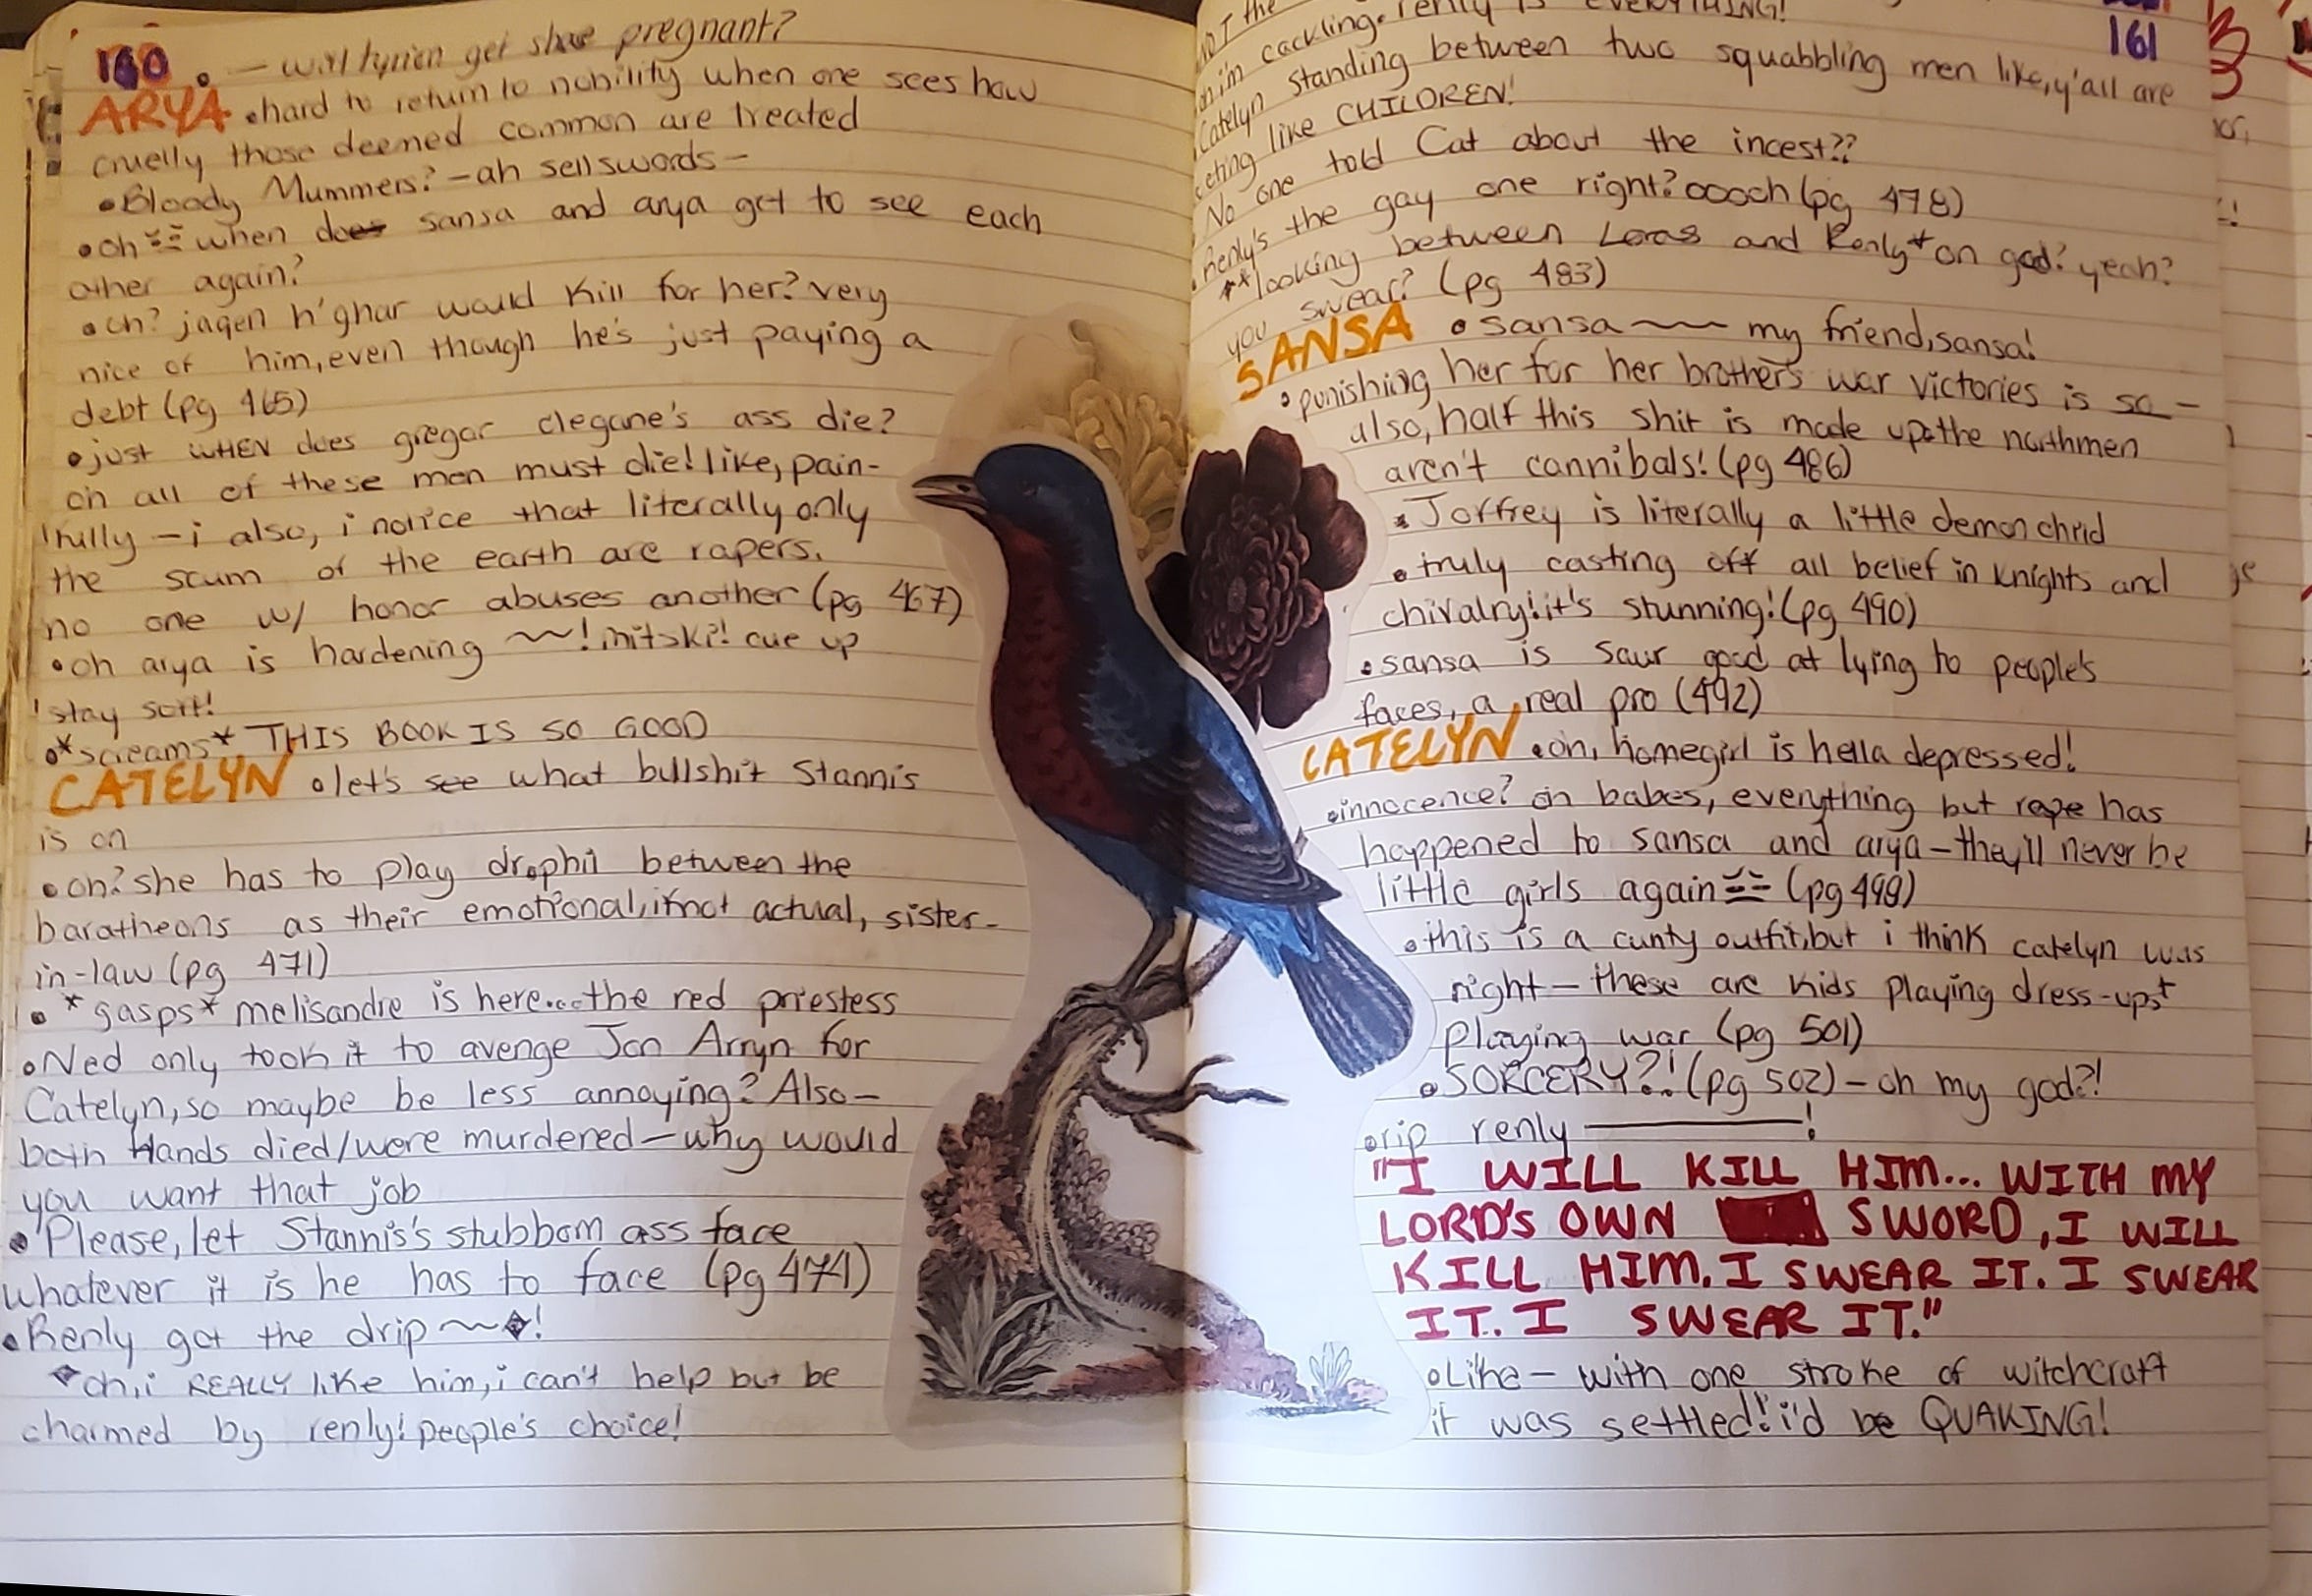 160
• — will tyrion get shae pregnant?
ARYA • hard to return to nobility when one sees how
cruelly those deemed common are treated
• Bloody Mummers? - ah sellswords -
• oh when does sansa and arya get to see each
other again?
• oh? jaqen h'ghar would kill for her? very
nice of him, even though he's just paying a
debt (pg 465)
• just WHEN does gregor clegane's ass die?
oh all of these men must die! like, pain-
fully - i also, i notice that literally only
the scum of the earth are rapers.
no one w/ honor abuses another (pg 467)
• oh arya is hardening ~~! mitski! cue up
'stay soft!
• *screams* THIS BOOK IS SO GOOD
CATELYN • let's see what bullshit Stannis
is on
• oh? she has to play drophil between the
baratheons as their emotional, if not actual, sister-
in-law (pg 471)
• *gasps* melisandre is here... the red priestess
• Ned only took it to avenge Jon Arryn for
Catelyn, so maybe be less annoying? Also -
both Hands died/were murdered - why would
you want that job
• Please, let Stannis's stubborn ass face
whatever it is he has to face (pg 474)
• Renly got the drip ~~!
oh, i REALLY like him, i can't help but be
charmed by renly! people's choice!
161
NOT the
on i'm cackling. renly is EVERYTHING!
Catelyn standing between two squabbling men like, y'all are
acting like CHILDREN!
No one told Cat about the incest??
• Renly's the gay one right? ooooh (pg 478)
**looking between Loras and Renly* on god? yeah?
you swear? (pg 483)
SANSA • sansa ~~ my friend, sansa!
• punishing her for her brother's war victories is so -
also, half this shit is made up. the northmen
aren't cannibals! (pg 486)
• Joffrey is literally a little demon child
• truly casting off all belief in knights and
chivalry! it's stunning! (pg 490)
• sansa is saur good at lying to people's
faces, a real pro (492)
CATELYN • oh, homegirl is hella depressed!
• innocence? oh babes, everything but rape has
happened to sansa and arya - they'll never be
little girls again (pg 499)
• this is a cunty outfit, but i think catelyn was
right - these are kids playing dress-ups +
playing war (pg 501)
• SORCERY?! (pg 502) - oh my god?!
• rip renly ———!
"I WILL KILL HIM... WITH MY
LORD'S OWN SWORD, I WILL
KILL HIM. I SWEAR IT. I SWEAR
IT. I SWEAR IT."
• Like - with one stroke of witchcraft
it was settled! i'd be QUAKING!